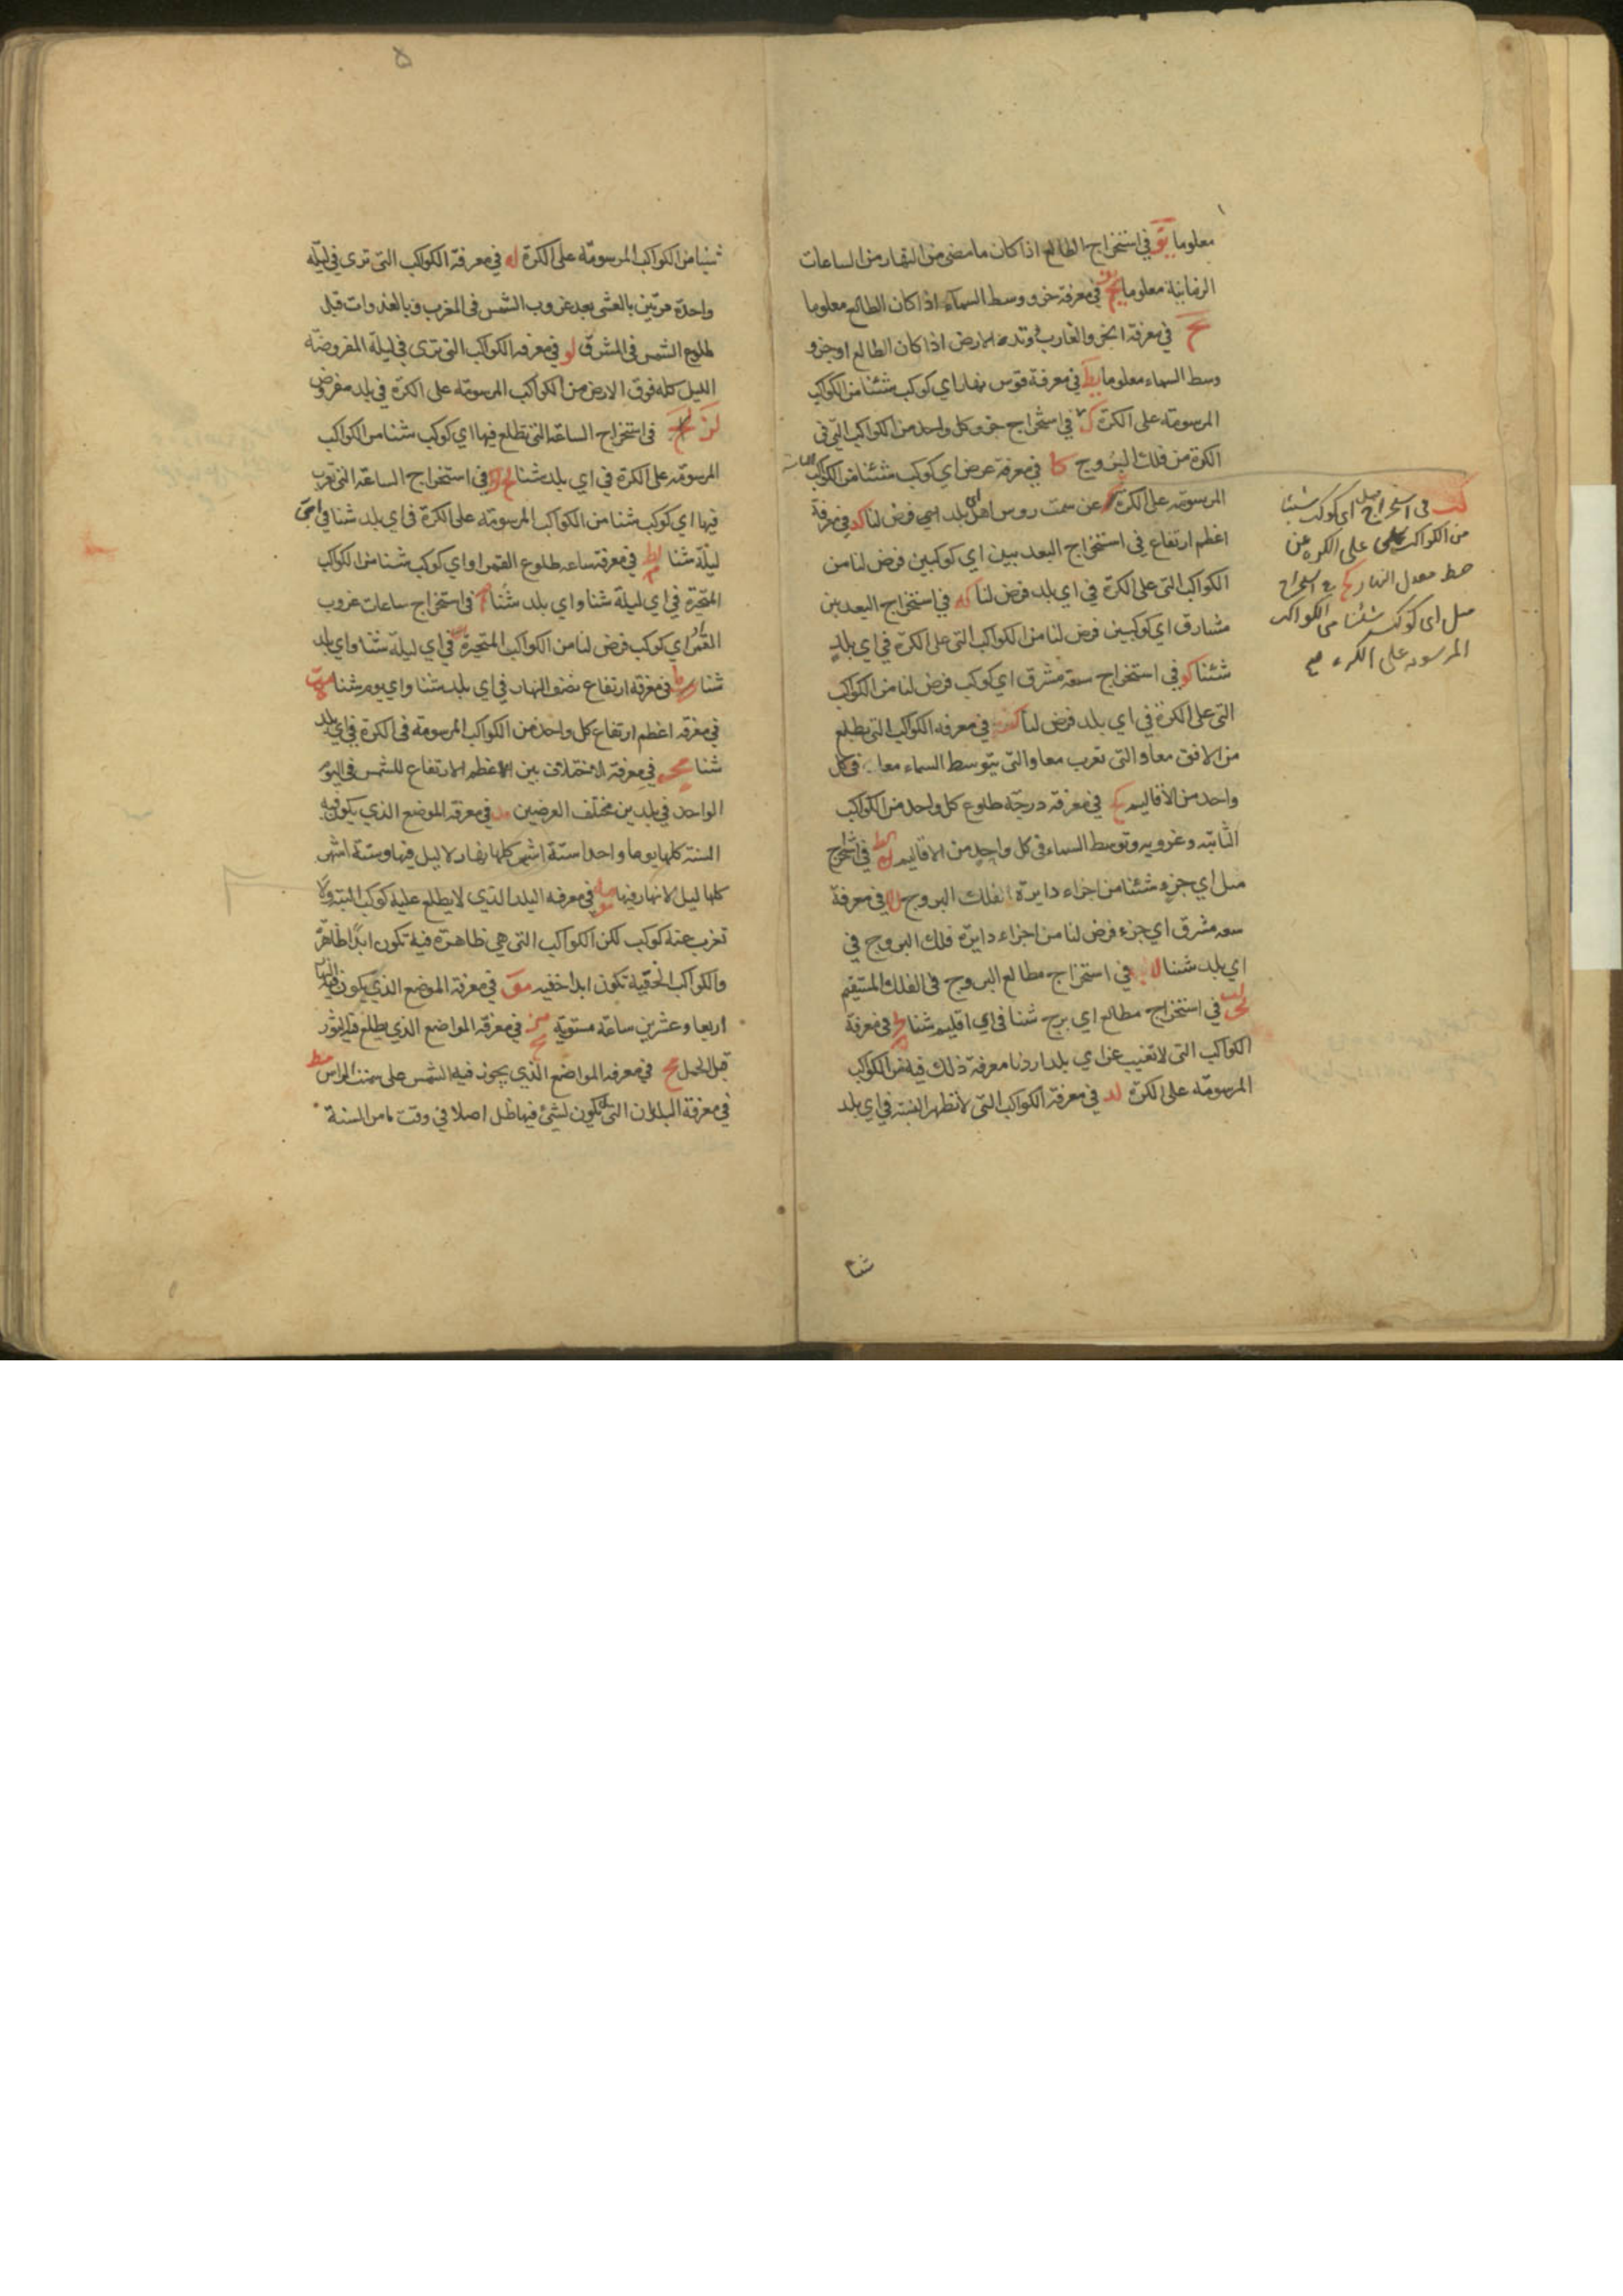 معلوما يو في استخراج الطالع اذا كان ما مضى من النهار من الساعات
الزمانية معلوما يز في معرفة جزو وسط السمآء اذا كان الطالع معلوما
يح في معرفة الجزو الغارب و وتد الارض اذا كان الطالع او جزو
وسط السماء معلوما يط في معرفة قوس نهار اي كوكب شئنا من الكواكب
المرسومة على الكرة ك في استخراج جزو كل واحد من الكواكب التي في
الكرة من فلك البروج كا في معرفة عرض اي كوكب شئنا من الكواكب الثابتة
المرسومة على الكرة عن سمت روس اهل اي بلد فرض لنا كد في معرفة
اعظم ارتفاع في استخراج البعد بين اي كوكبين فرض لنا من
الكواكب التي على الكرة في اي بلد فرض لنا كه في استخراج البعد بين
مشارق اي كوكبين فرض لنا من الكواكب التي على الكرة في اي بلد
شئنا كو في استخراج سعة مشرق اي كوكب فرض لنا من الكواكب
التي على الكرة في اي بلد فرض لنا كز في معرفة الكواكب التي تطلع
من الافق معا و التي تغرب معا و التي تتوسط السماء معا في كل
واحد من الأقاليم كح في معرفة درجة طلوع كل واحد من الكواكب
الثابتة و غروبه و توسط السماء في كل واحد من الاقاليم كط في استخراج
ميل اي جزء شئنا من اجزاء دايرة فلك البروج ل في معرفة
سعة مشرق اي جزء فرض لنا من اجزاء دايرة فلك البروج في
اي بلد شئنا لا في استخراج مطالع البروج في الفلك المستقيم
لب في استخراج مطالع اي برج شئنا في اي اقليم شئنا لج في معرفة
الكواكب التي لا تغيب عن اي بلد اردنا معرفة ذلك فيه من الكواكب
المرسومة على الكرة لد في معرفة الكواكب التي لا تظهر البتة في اي بلد
شئنا
كب في استخراج ميل اي كوكب شئنا
من الكواكب على الكرة عن
خط معدل النهار كج في استخراج
ميل اي كوكب شئنا من الكواكب
المرسومة على الكرة صح
٥
شئنا من الكواكب المرسومة على الكرة له في معرفة الكواكب التي ترى في ليلة
واحدة مرتين بالعشي بعد غروب الشمس في المغرب و بالغدوات قبل
طلوع الشمس في المشرق لو في معرفة الكواكب التي ترى في ليلة المفروضة
الليل كله فوق الارض من الكواكب المرسومة على الكرة في بلد مفروض
لز في استخراج الساعة التي تطلع فيها اي كوكب شئنا من الكواكب
المرسومة على الكرة في اي بلد شئنا لح في استخراج الساعة التي تغرب
فيها اي كوكب شئنا من الكواكب المرسومة على الكرة في اي بلد شئنا في اي
ليلة شئنا لط في معرفة ساعة طلوع القمر او اي كوكب شئنا من الكواكب
المتحيرة في اي ليلة شئنا و اي بلد شئنا م في استخراج ساعات غروب
القمر او اي كوكب فرض لنا من الكواكب المتحيرة في اي ليلة شئنا و اي بلد
شئنا ما في معرفة ارتفاع نصف النهار في اي بلد شئنا و اي يوم شئنا مب
في معرفة اعظم ارتفاع كل واحد من الكواكب المرسومة في الكرة في اي بلد
شئنا مج في معرفة الاختلاف بين الاعظم الارتفاع للشمس في اليوم
الواحد في بلدين مختلف العرضين مد في معرفة الموضع الذي يكون فيه
السنة كلها يوما واحدا ستة اشهر كلها نهار لا ليل فيها و ستة اشهر
كلها ليل لا نهار فيها مه في معرفة البلد الذي لا يطلع عليه كوكب البتة ولا
تغرب عنه كوكب لكن الكواكب التي هي ظاهرة فيه تكون ابدا ظاهرة
والكواكب الخفية تكون ابدا خفيه مو في معرفة الموضع الذي يكون فيه النهار
اربعا و عشرين ساعة مستوية مز في معرفة المواضع الذي يطلع فيه الثور
قبل الحمل مح في معرفة المواضع الذي يجوز فيه الشمس على سمت الراس مط
في معرفة البلدان التي لا يكون لشيء فيها ظل اصلا في وقت ما من السنة